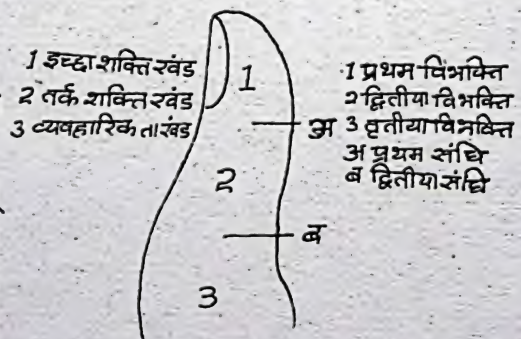 1 इच्छा शक्ति खंड
2 तर्क शक्ति खंड
3 व्यवहारिकता खंड
1
2
3
अ
ब
1 प्रथम विभक्ति
2 द्वितीया विभक्ति
3 तृतीया विभक्ति
अ प्रथम संधि
ब द्वितीया संधि